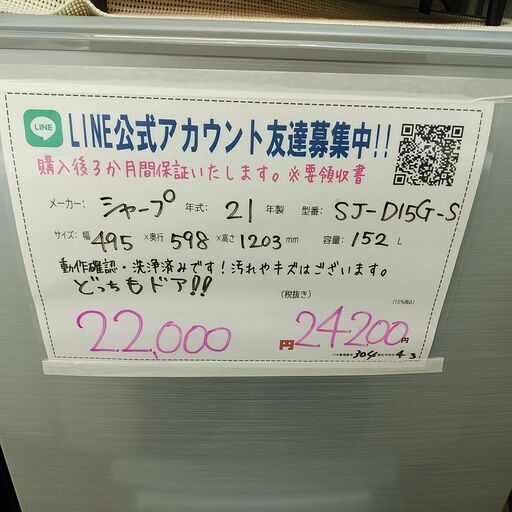 LINE
LINE公式アカウント友達募集中!!
購入後3か月間保証いたします。※要領収書
メーカー: シャープ 年式: 21年製 型番: SJ-D15G-S
サイズ: 幅 495 ×奥行 598 ×高さ 1203 mm 容量: 152 L
動作確認・洗浄済みです!汚れやキズはございます。
どっちもドア!!
(税抜き) (10%税込)
22,000円 24,200円
304 4 3